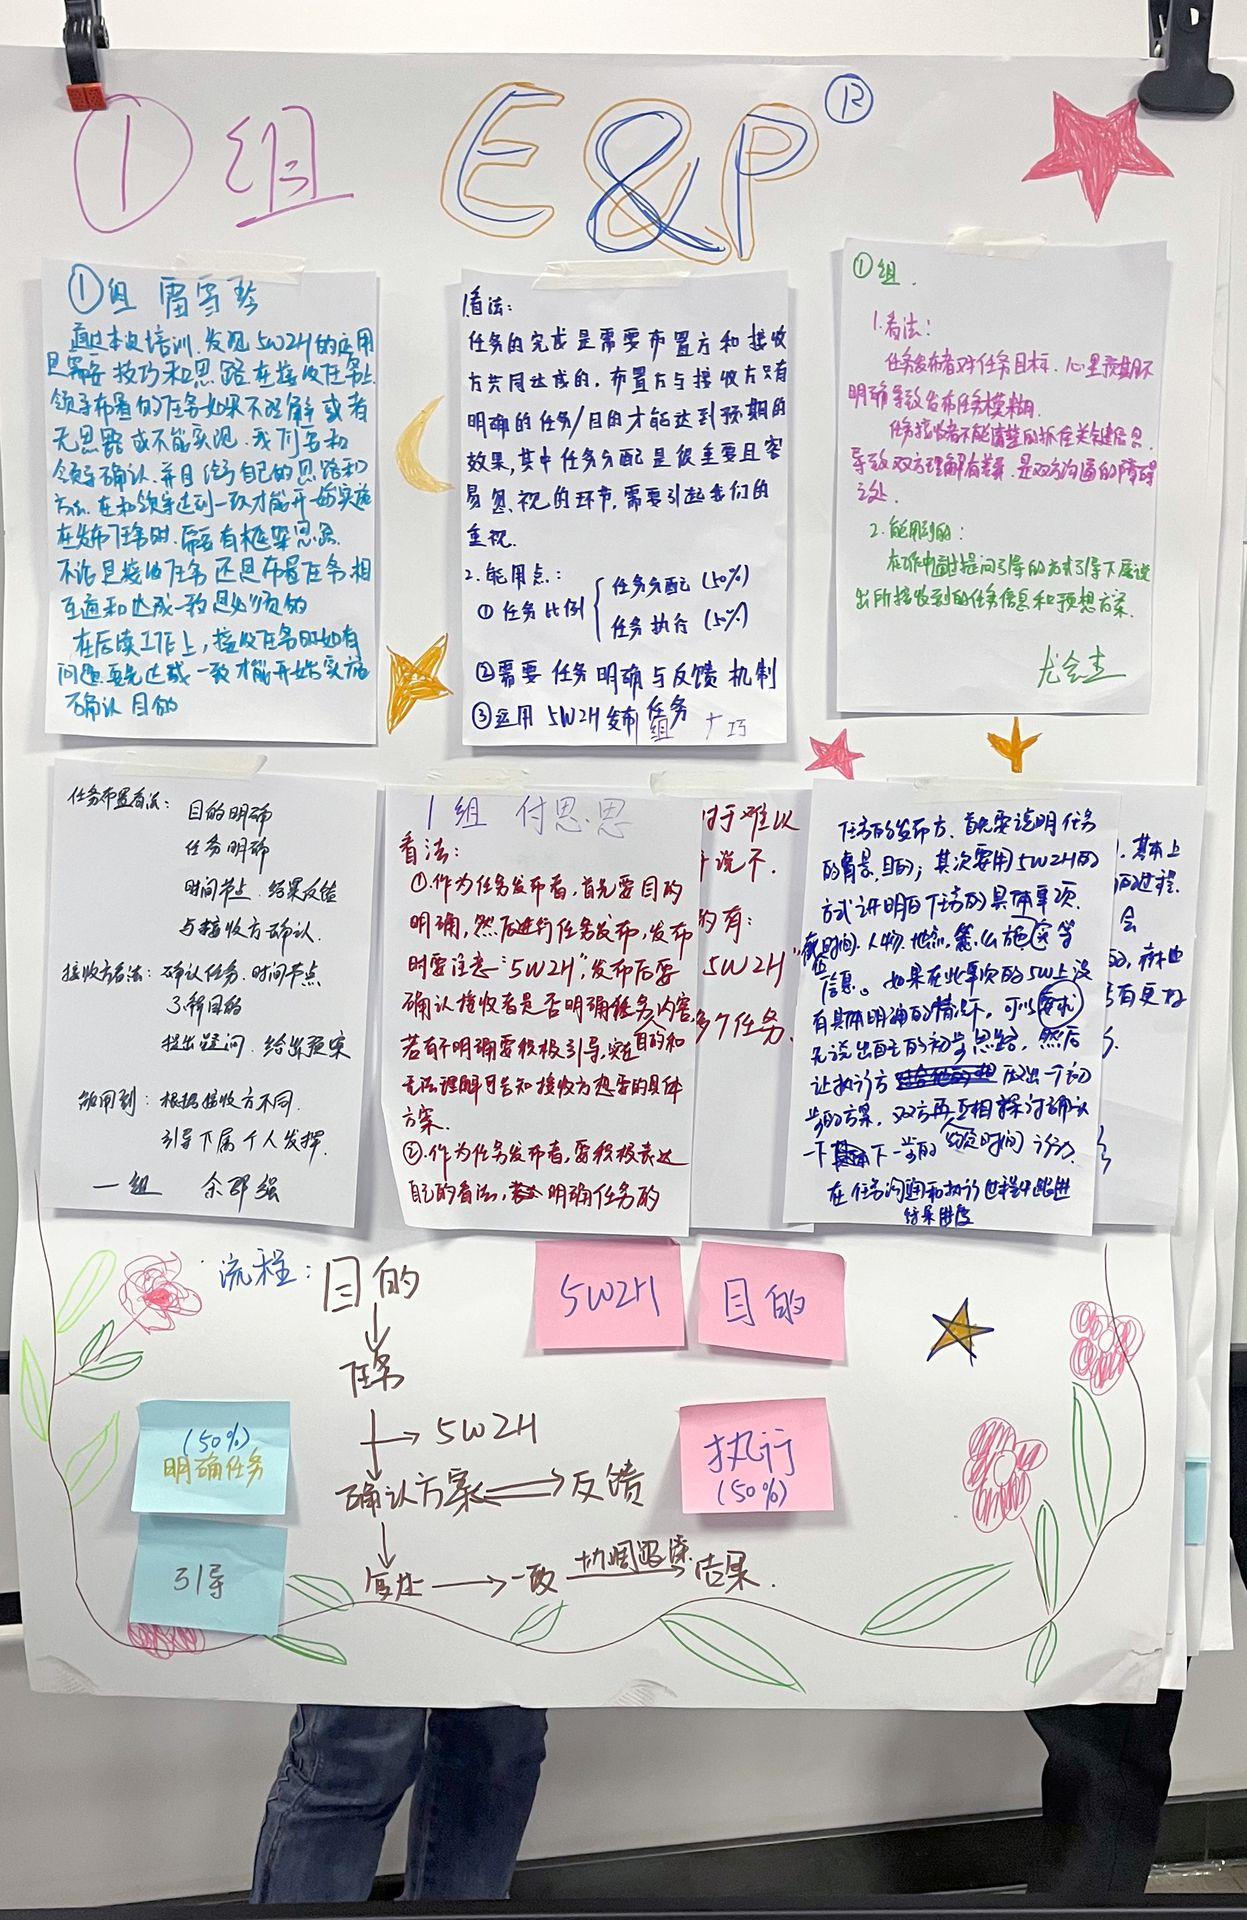 ①组 E&P
①组
通过本次培训,发现5W2H的应用
是需要技巧和思路在接收任务上
领导布置的任务如果不理解或者
无思路或不能实现,我们要和
领导确认.并且 自己的思路和
方法.在和领导达到一致才能开始实施
在发布任务时.需要有框架思急
不论是接收任务还是布置任务相
互通和达成一致是必须的
在后续工作上,接收任务时如有
问题 要先达成一致才能开始实施
确认目的
1.看法:
任务的完成是需要布置方和接收
方共同达成的,布置方与接收方只有
明确的任务/目的才能达到预期的
效果,其中任务分配是很重要且容
易忽视的环节,需要引起我们的
重视.
2.能用点:
①任务比例 任务分配(50%)
任务执行(50%)
②需要任务明确与反馈机制
③运用5W2H发布任务
①组.
1.看法:
任务发布者对任务目标.心里预期不
明确导致发布任务模糊.
任务接收者不能清楚的抓住关键信息.
导致双方理解有差异.是双方沟通的障碍
之处.
2.能用到的:
在工作中通过提问引导的方式引导下属说
出所接收到的任务信息和预想方案.
任务布置看法: 目的明确
任务明确
时间节点.结果反馈
与接收方确认.
接收方看法: 确认任务.时间节点
了解目的
提出疑问.给出预案
能用到: 根据接收方不同.
引导下属个人发挥.
一组
1组 付思思
看法:
①.作为任务发布者,首先要目的
明确,然后进行任务发布,发布
时要注意“5W2H”,发布后要
确认接收者是否明确任务内容.
目的和
若有不明确要积极引导,实在
无法理解可告知接收方想要的具体
方案.
②.作为任务发布者,要积极表达
自己的看法, 明确任务的
对于难以
说不.
的有:
5W2H”
多个任务.
任务的发布方.首先要说明任务
的背景,目的;其次要用5W2H的
方式讲明白任务的具体事项.
时间.人物.地点. 什么 等
信息。如果在此事项的5W上没
有具体明确的情况下,可以要求
先说出自己的初步思路,然后
让执行方 做出一个初
步的方案,双方再互相探讨确认
一下 下一步的 时间 行动.
在任务沟通和执行过程中跟进
结果进度
基本上
过程.
会
有更好
流程: 目的
5W2H
目的
任务
5W2H
(50%)
明确任务
执行
(50%)
确认方案 反馈
引导
一致 协调跟踪 结果.